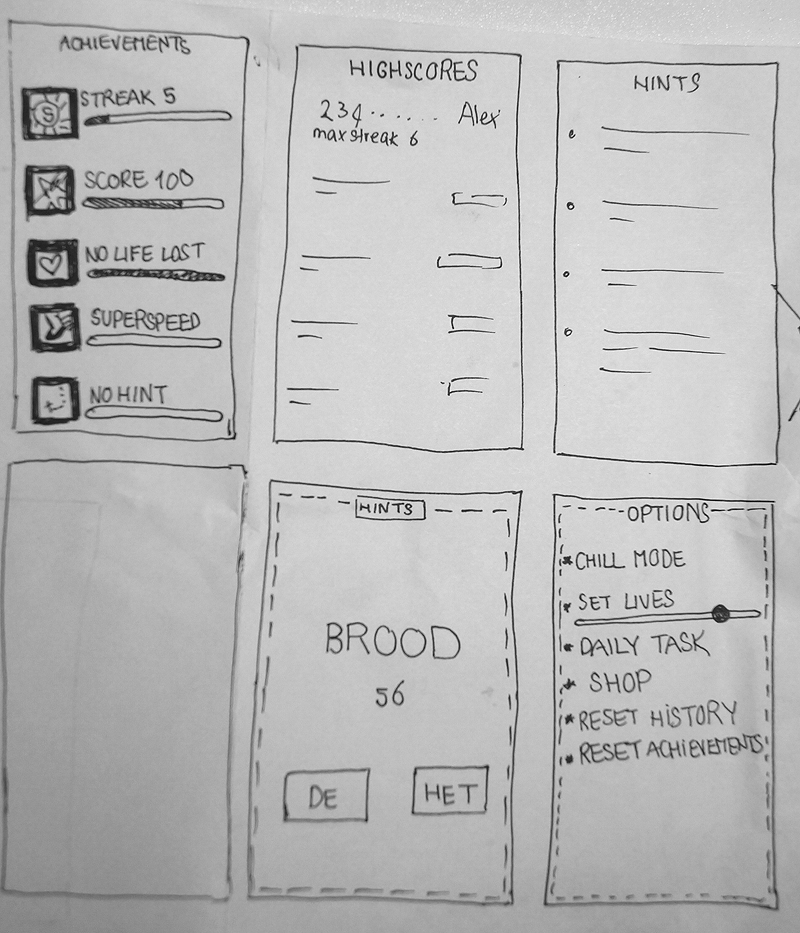 ACHIEVEMENTS
S
STREAK 5
SCORE 100
NO LIFE LOST
SUPERSPEED
NO HINT
HIGHSCORES
234....... Alex
max streak 6
HINTS
HINTS
BROOD
56
DE
HET
OPTIONS
CHILL MODE
SET LIVES
DAILY TASK
SHOP
RESET HISTORY
RESET ACHIEVEMENTS